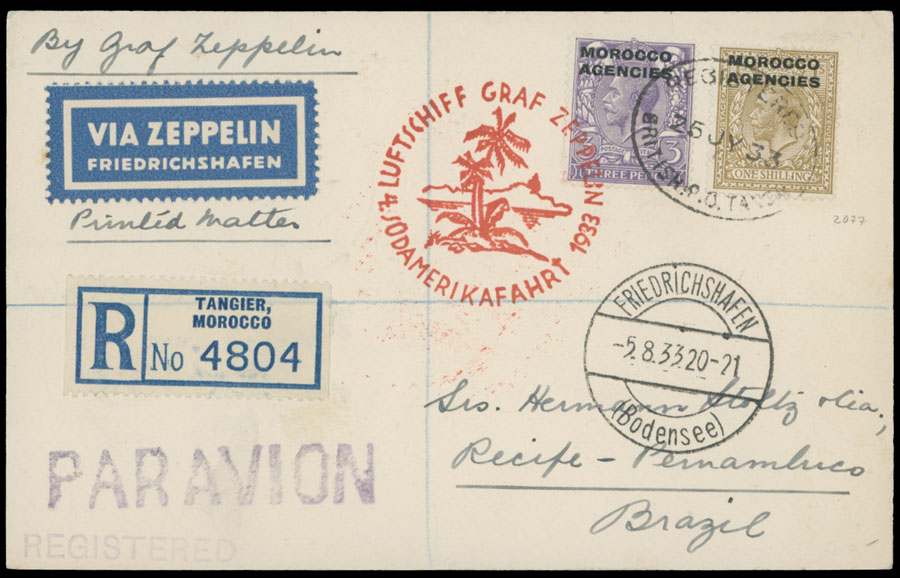 By Graf Zeppelin
VIA ZEPPELIN
FRIEDRICHSHAFEN
Printed Matter
R
TANGIER,
MOROCCO
No 4804
PAR AVION
REGISTERED
4. SÜDAMERIKAFAHRT 1933
LUFTSCHIFF GRAF ZEPPELIN
MOROCCO
AGENCIES
POSTAGE
3 3
THREE PENCE
MOROCCO
AGENCIES
ONE SHILLING
REGISTERED
25 JY 33
BRITISH P.O. TANGIER
2077
FRIEDRICHSHAFEN
-5.8.33.20-21
(Bodensee)
Srs. Hermann Stoltz & Cia.,
Recife - Pernambuco
Brazil